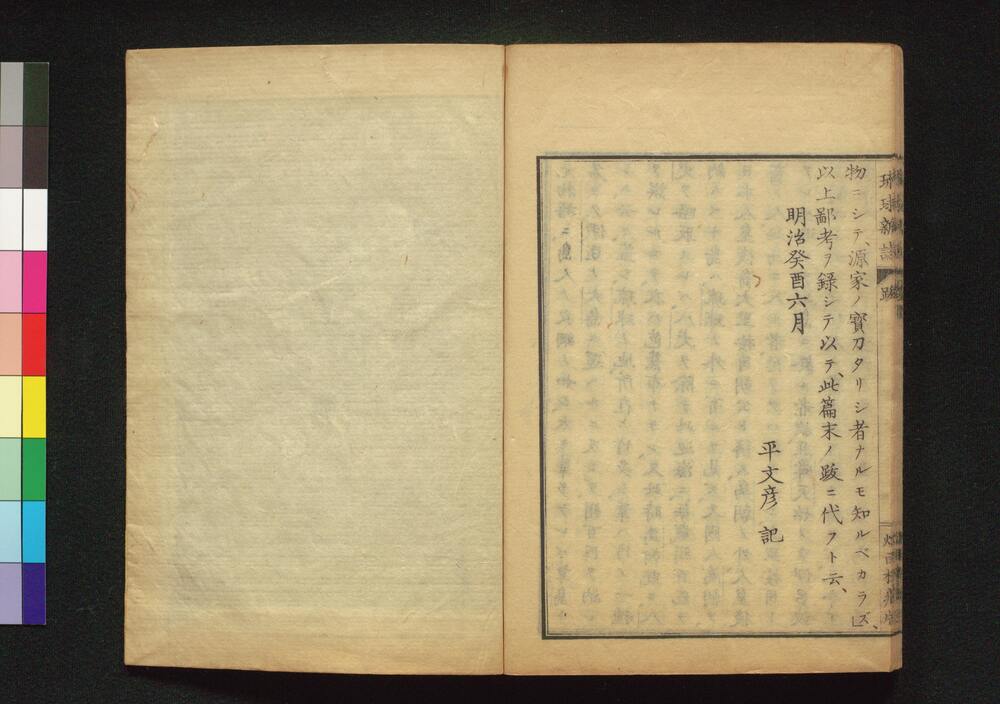 琉球新誌
跋
物ニシテ、源家ノ寳刀タリシ者ナルモ知ルベカラズ、」
以上鄙考ヲ録シテ以テ、此篇末ノ跋ニ代フト云、
明治癸酉六月
平文彦 記